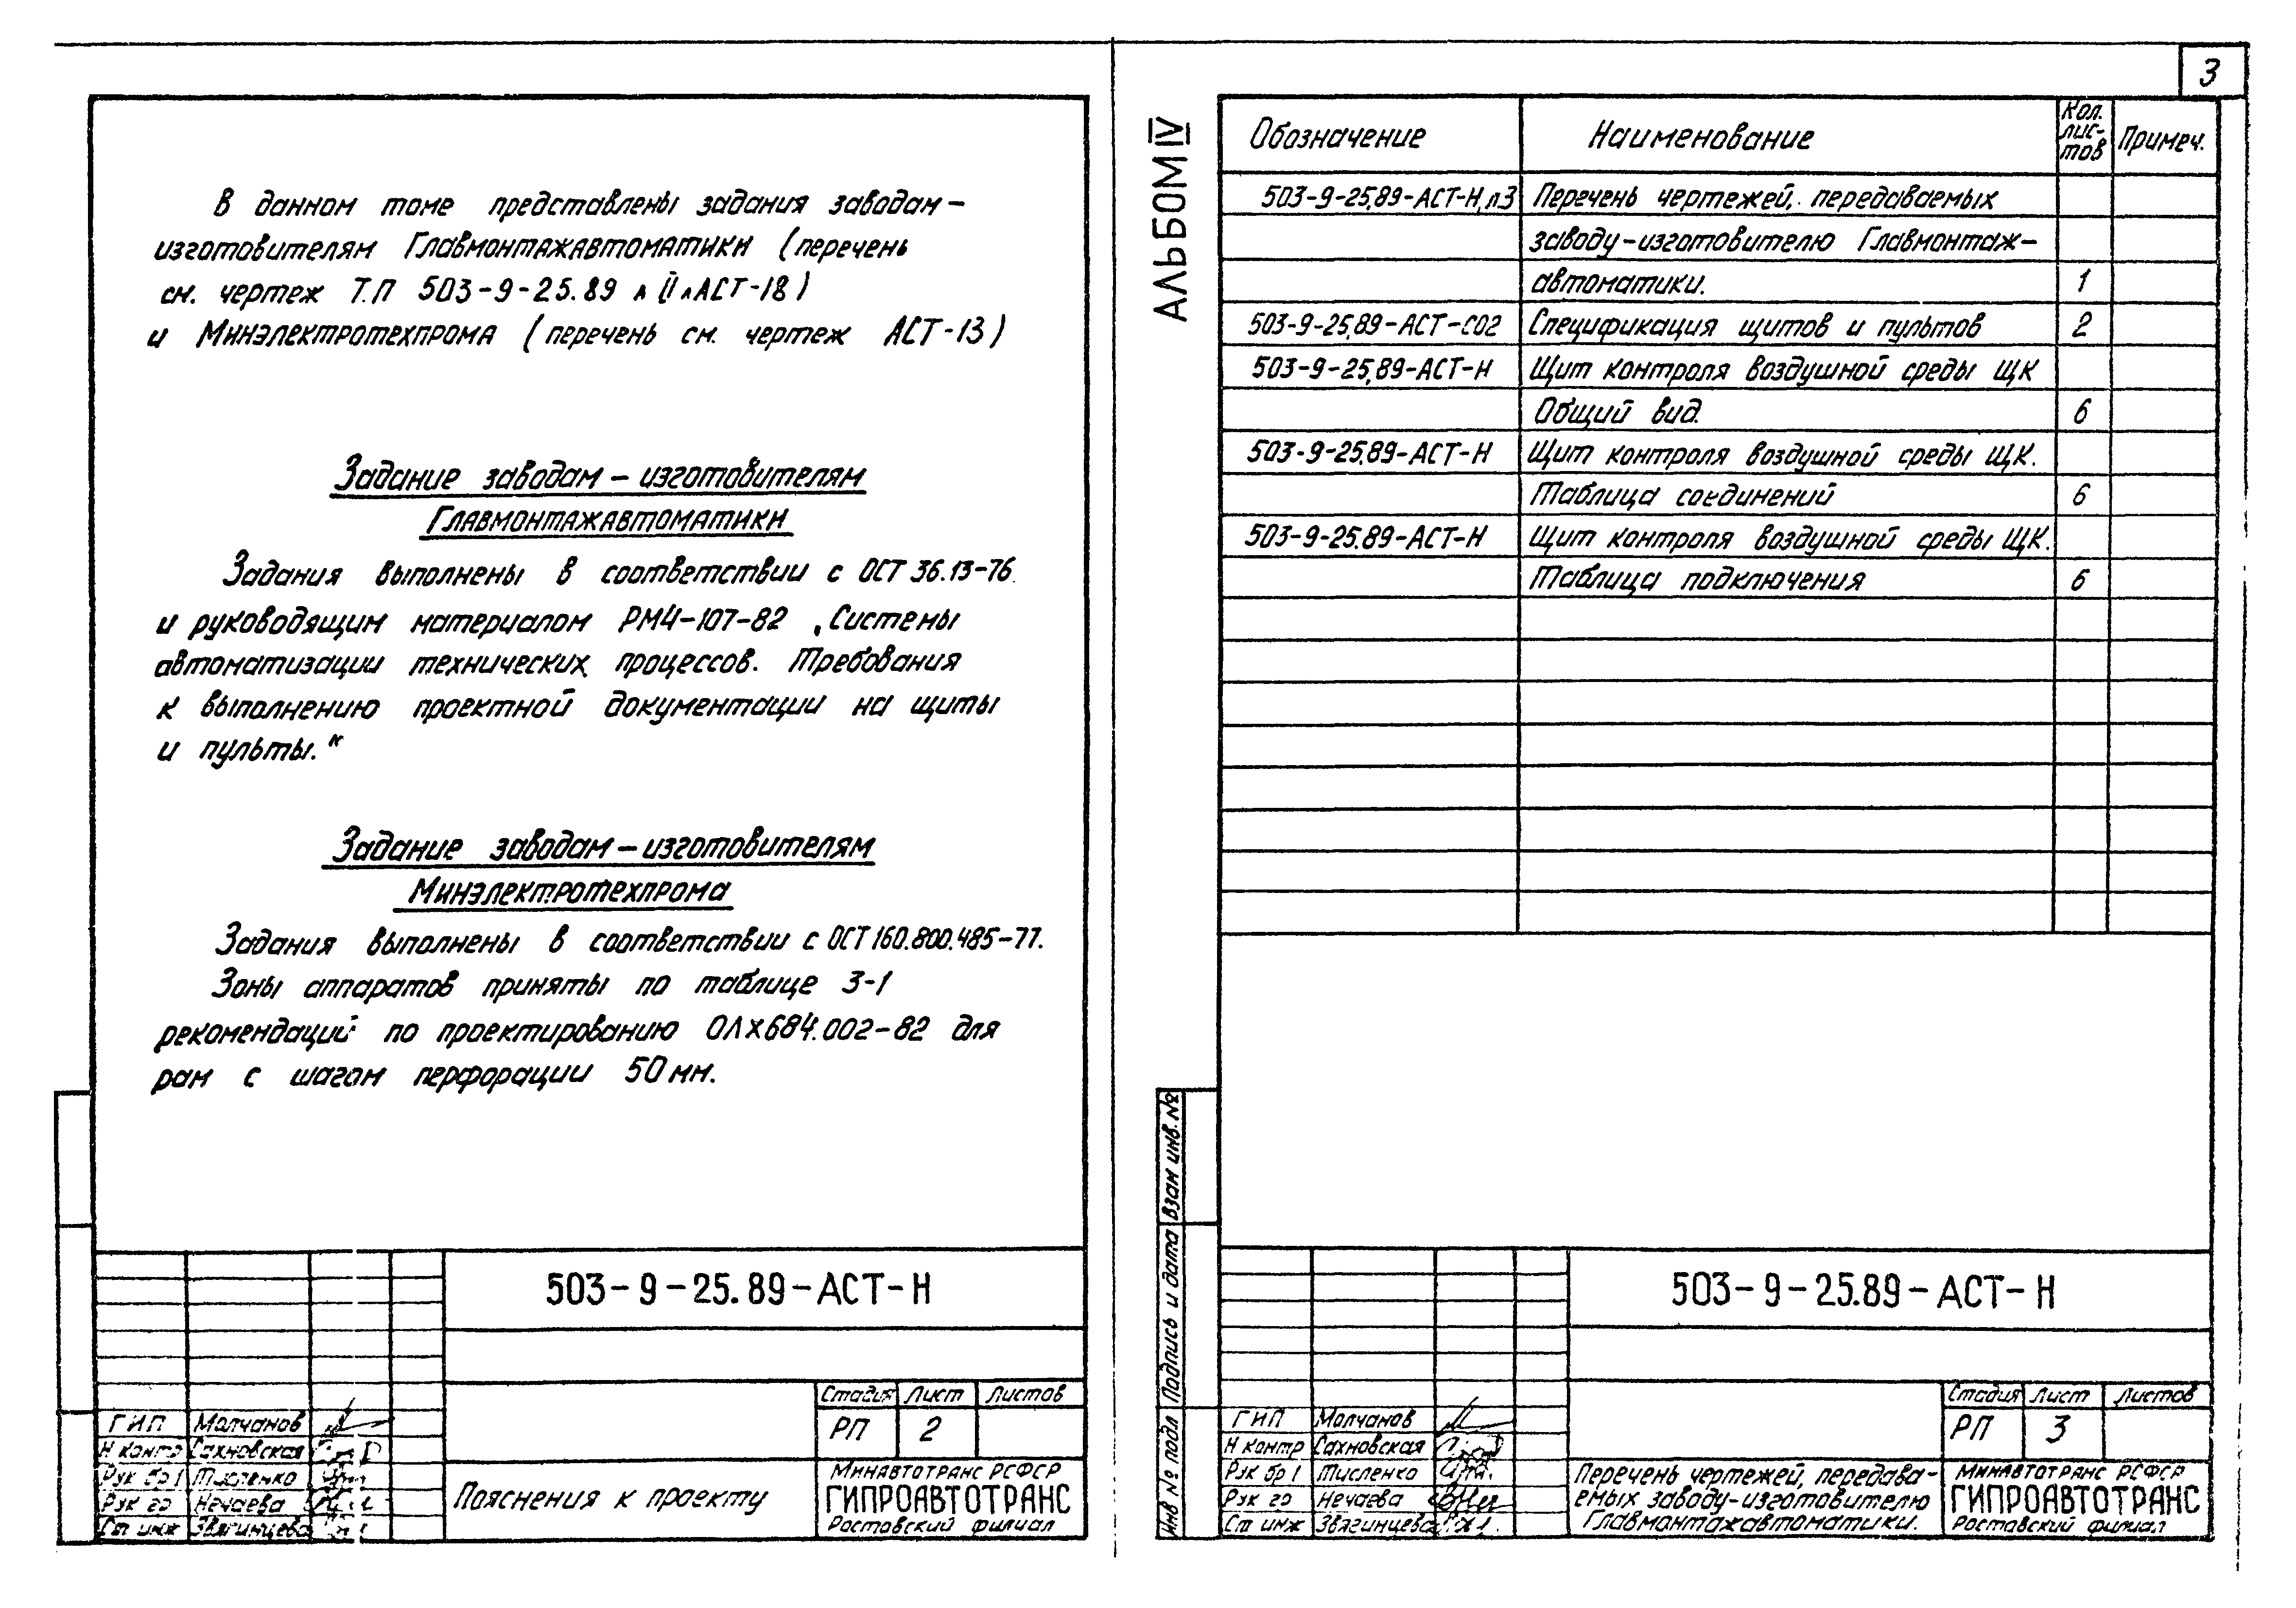 В данном томе представлены задания заводам-
изготовителям Главмонтажавтоматики (перечень
см. чертеж Т.П 503-9-25.89 АСТ-18)
и Минэлектротехпрома (перечень см. чертеж АСТ-13)
Задание заводам-изготовителям
Главмонтажавтоматики
Задания выполнены в соответствии с ОСТ 36.13-76
и руководящим материалом РМ4-107-82 „Системы
автоматизации технических процессов. Требования
к выполнению проектной документации на щиты
и пульты."
Задание заводам-изготовителям
Минэлектротехпрома
Задания выполнены в соответствии с ОСТ 160.800.485-77.
Зоны аппаратов приняты по таблице 3-1
рекомендаций по проектированию ОЛХ684.002-82 для
рам с шагом перфорации 50 мм.
503-9-25.89-АСТ-Н
Стадия Лист Листов
РП 2
ГИП Молчанов
Н контр Сахновская
Рук бр 1 Тисленко
Рук гр Нечаева
Ст инж Звягинцева
Пояснения к проекту
Минавтотранс РСФСР
ГИПРОАВТОТРАНС
Ростовский филиал
3
АЛЬБОМ IV
Обозначение Наименование Кол. лис-тов Примеч.
503-9-25.89-АСТ-Н, л3 Перечень чертежей, передаваемых
заводу-изготовителю Главмонтаж-
автоматики. 1
503-9-25.89-АСТ-СО2 Спецификация щитов и пультов 2
503-9-25.89-АСТ-Н Щит контроля воздушной среды ЩК
Общий вид. 6
503-9-25.89-АСТ-Н Щит контроля воздушной среды ЩК.
Таблица соединений 6
503-9-25.89-АСТ-Н Щит контроля воздушной среды ЩК.
Таблица подключения 6
Инв № подл Подпись и дата Взам инв. №
503-9-25.89-АСТ-Н
Стадия Лист Листов
РП 3
ГИП Молчанов
Н контр Сахновская
Рук бр 1 Тисленко
Рук гр Нечаева
Ст инж Звягинцева
Перечень чертежей, передава-
емых заводу-изготовителю
Главмонтажавтоматики.
Минавтотранс РСФСР
ГИПРОАВТОТРАНС
Ростовский филиал